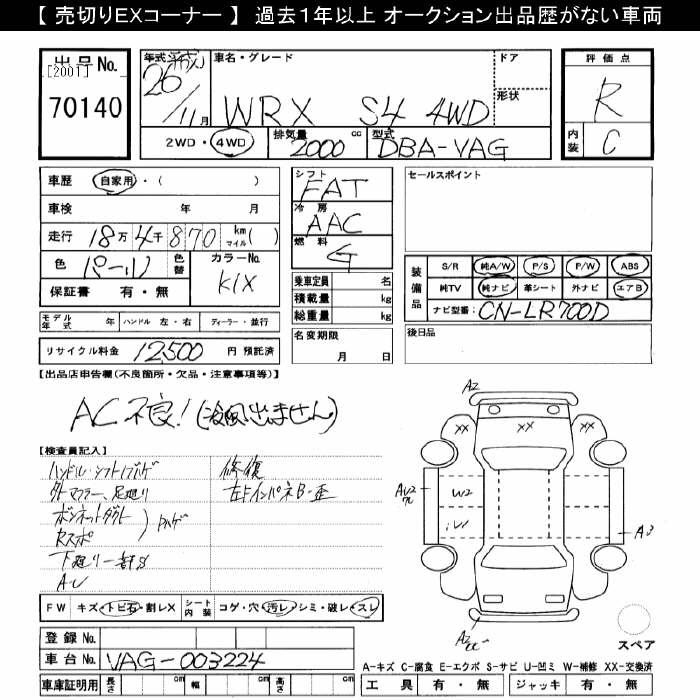 【 売切りEXコーナー 】 過去1年以上 オークション出品歴がない車両
出品No.
[2001]
70140
年式 平成
26
11月
車名・グレード
WRX S4 4WD
ドア
形状
2WD・4WD
排気量 2000 cc
型式 DBA-VAG
評価点
R
内装 C
車歴 自家用・( )
車検 年 月
走行 18万4千870 km マイル( )
色 パール 色替
カラーNo. K1X
保証書 有・無
モデル年式 年 ハンドル 左・右 ディーラー・並行
リサイクル料金 12,500 円 預託済
シフト FAT
冷房 AAC
燃料 G
乗車定員 名
積載量 kg
総重量 kg
名変期限
月 日
セールスポイント
装備品
S/R 純A/W P/S P/W ABS
純TV 純ナビ 革シート 外ナビ エアB
ナビ型番 CN-LR700D
後日品
【出品店申告欄(不良箇所・欠品・注意事項等)】
AC不良!(冷風出ません)
【検査員記入】
ハンドル・シフトノブハゲ
外マフラー、足廻り
ボンネットダクト
Rスポ
ハゲ
下廻り一部S
AU
修復
左Fインパネ B・歪
FW キズ・トビ石・割レX シート内装 コゲ・穴・汚レ・シミ・破レ・スレ
登録No.
車台No. VAG-003224
車庫証明用 長さ cm 幅 cm 高さ cm
A2
XX XX XX
AU2
W2
A3
スペア
A-キズ C-腐食 E-エクボ S-サビ U-凹ミ W-補修 XX-交換済
工具 有・無 ジャッキ 有・無